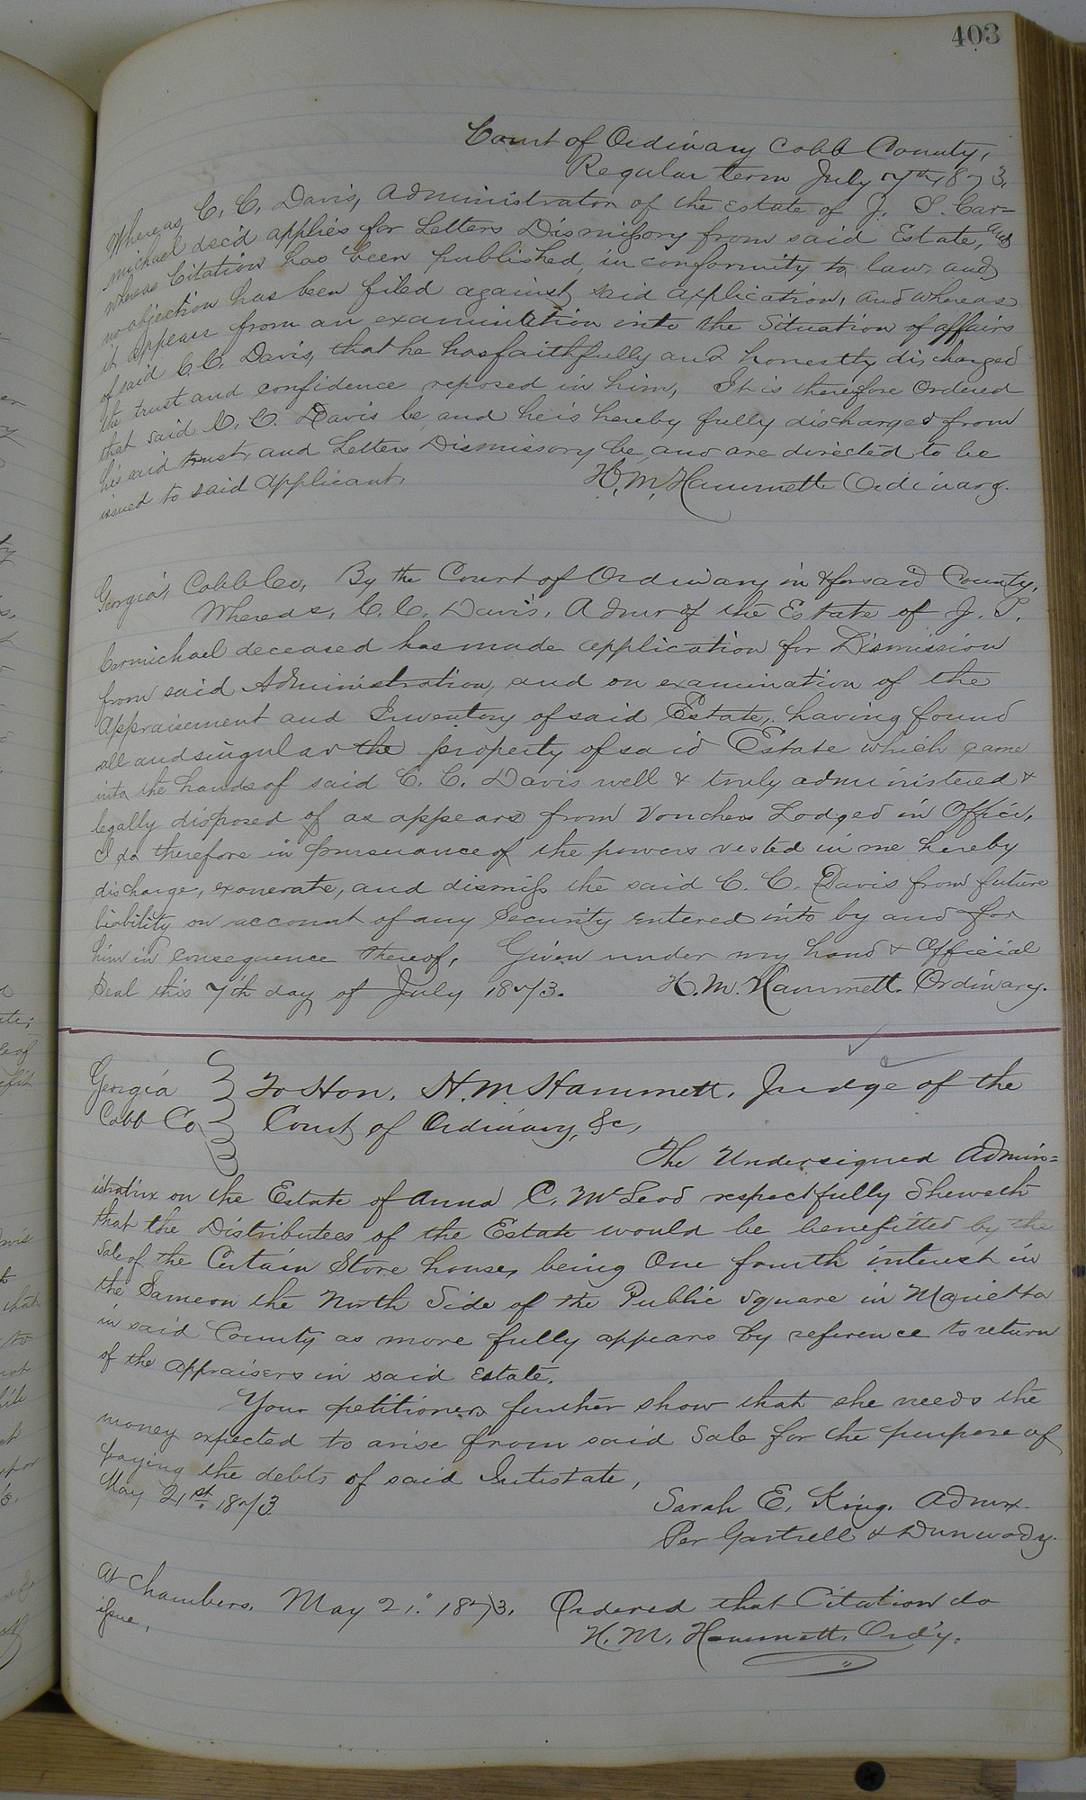 403
Court of Ordinary Cobb County,
Regular term July 7th 1873.
Whereas C. C. Davis, Administrator of the Estate of J. S. Car=
michael dec'd applies for Letters Dismissory from said Estate, and
whereas Citation has been published, in conformity to law, and
no objection has been filed against said application, and whereas
it appears from an examination into the Situation of affairs
of said C. C. Davis, that he has faithfully and honestly discharged
the trust and confidence reposed in him, It is therefore Ordered
that said C. C. Davis be, and he is hereby fully discharged from
his said trust, and Letters Dismissory be, and are directed to be
issued to said applicant.
H. M. Hammett Ordinary.
Georgia, Cobb Co, By the Court of Ordinary in & for said County,
Whereas, C. C. Davis, Admr of the Estate of J. S.
Carmichael deceased has made application for Dismission
from said Administration, and on examination of the
Appraisement and Inventory of said Estate, having found
all and singular the property of said Estate which came
into the hands of said C. C. Davis well & truly administered &
legally disposed of as appears from Vouchers Lodged in Office,
I do therefore in pursuance of the powers vested in me hereby
discharge, exonerate, and dismiss the said C. C. Davis from future
liability on account of any Security entered into by and for
him in consequence thereof, Given under my hand & Official
Seal this 7th day of July 1873.
H. M. Hammett. Ordinary.
Georgia
Cobb Co
To Hon. H. M. Hammett, Judge of the
Court of Ordinary, &c,
The Undersigned Admin=
istratrix on the Estate of Anna C. McLeod respectfully Sheweth
that the Distributees of the Estate would be benefitted by the
Sale of the Certain Store house, being One fourth interest in
the Same on the North Side of the Public Square in Marietta
in said County as more fully appears by reference to return
of the appraisers in said Estate.
Your petitioners further show that she needs the
money expected to arise from said Sale for the purpose of
paying the debts of said Intestate,
May 21st. 1873.
Sarah E. King. Admrx.
Per Gartrell & Dunwody.
At Chambers. May 21. 1873. Ordered that Citation do
issue,
H. M. Hammett. Ord'y.